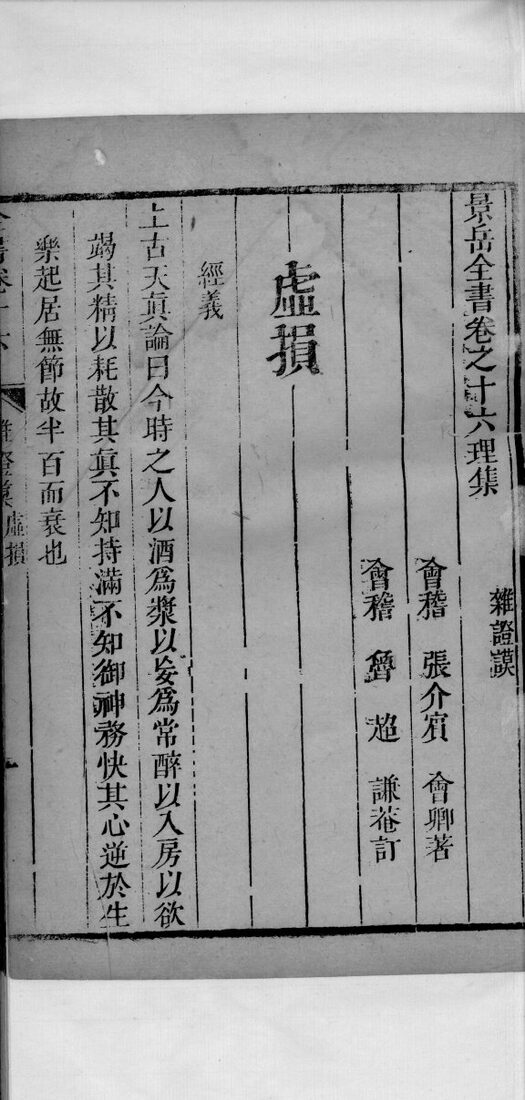 景岳全書卷之十六理集
雜證謨
會稽 張介賔 會卿著
會稽 魯 超 謙菴訂
虛損
經義
上古天眞論曰今時之人以酒爲漿以妄爲常醉以入房以欲
竭其精以耗散其眞不知持滿不知御神務快其心逆於生
樂起居無節故半百而衰也
全書卷十六
雜證謨虛損
一